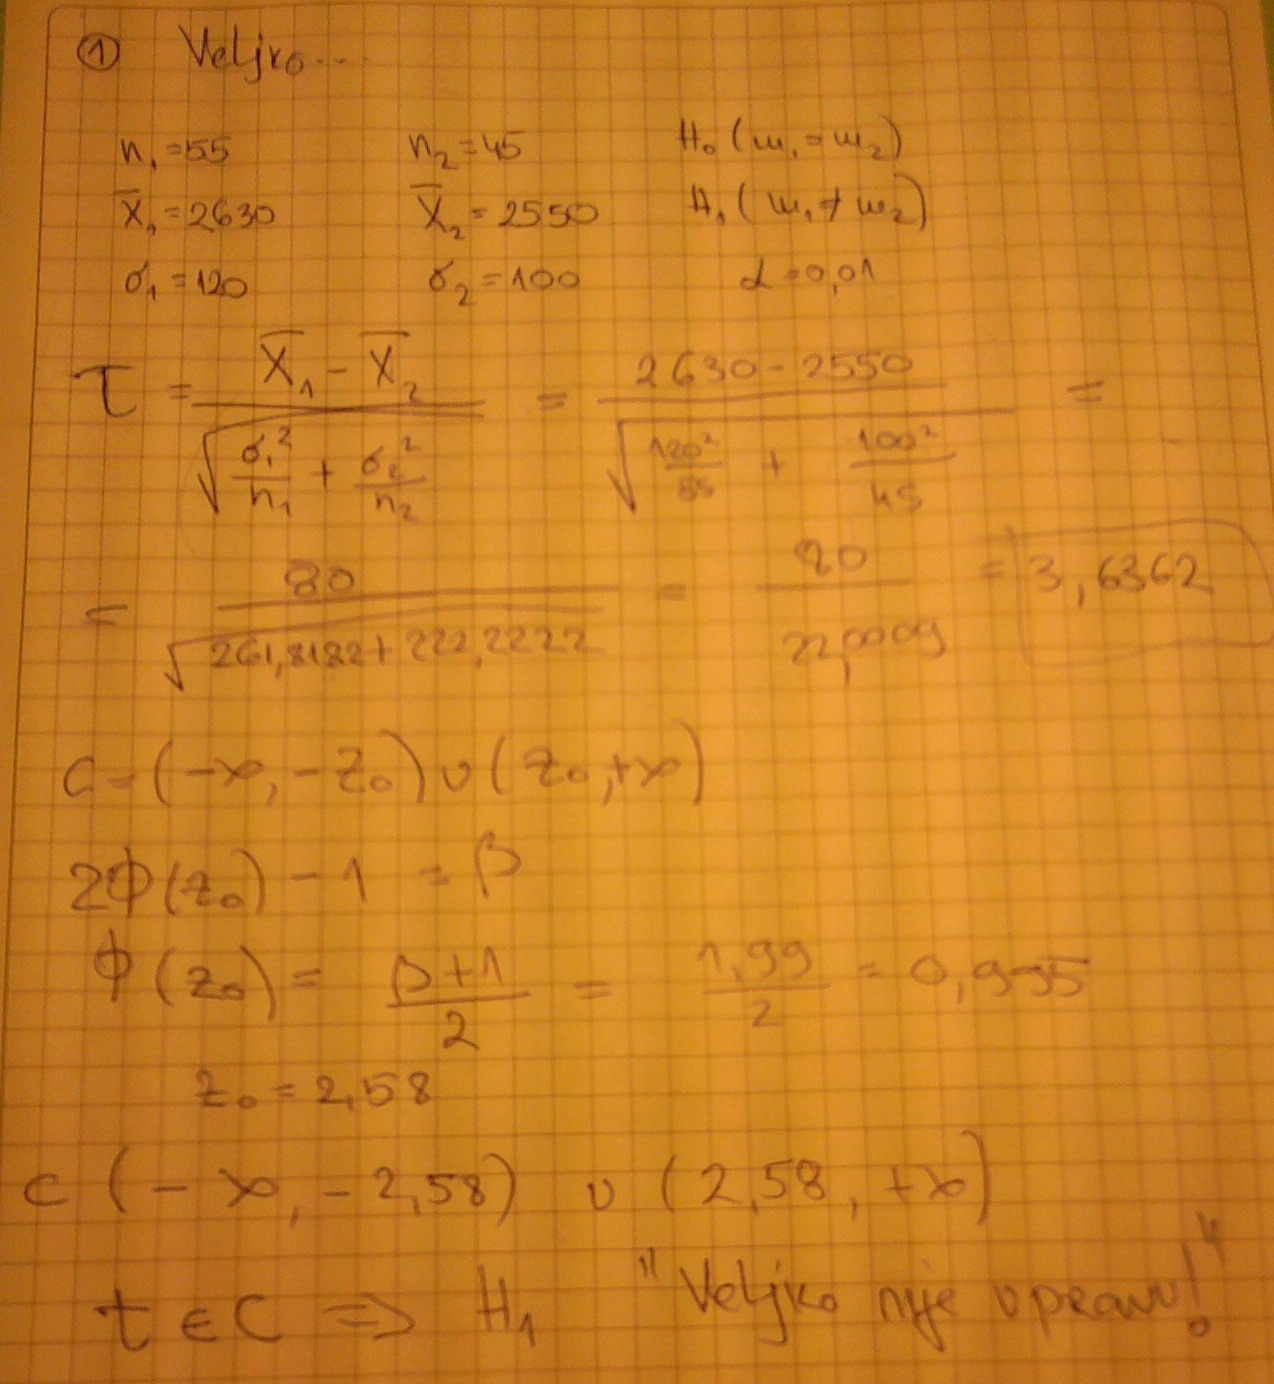 ① Veljko...
n₁=55 n₂=45 H₀(m₁=m₂)
X̄₁=2630 X̄₂=2550 H₁(m₁≠m₂)
σ₁=120 σ₂=100 α=0,01
τ = (X̄₁ - X̄₂) / √(σ₁²/n₁ + σ₂²/n₂) = (2630 - 2550) / √(120²/55 + 100²/45) =
= 80 / √(261,8182 + 222,2222) = 80 / 22,0009 = 3,6362
C=(-∞, -z₀) ∪ (z₀, +∞)
2Φ(z₀) - 1 = β
Φ(z₀) = (β+1)/2 = 1,99/2 = 0,995
z₀ = 2,58
C (-∞, -2,58) ∪ (2,58, +∞)
t ∈ C ⇒ H₁ "Veljko nije u pravu!"